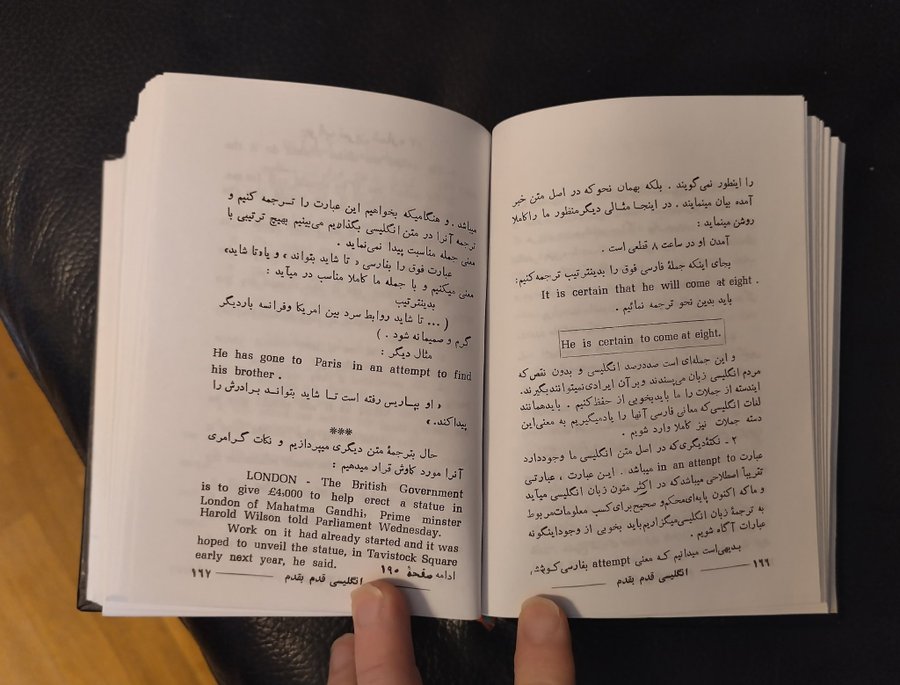 را اینطور نمی‌گویند . بلکه بهمان نحو که در اصل متن خبر
آمده بیان مینمایند . در اینجا مثالی دیگر منظور ما را کاملا
روشن مینماید :
آمدن او در ساعت ۸ قطعی است .
بجای اینکه جملهٔ فارسی فوق را بدینترتیب ترجمه کنیم:
It is certain that he will come at eight .
باید بدین نحو ترجمه نمائیم .
He is certain to come at eight.
و این جمله‌ای است صددرصد انگلیسی و بدون نقص که
مردم انگلیسی زبان می‌پسندند و بر آن ایرادی نمیتوانند بگیرند.
ایندسته از جملات را ما باید بخوبی از حفظ کنیم . باید همانند
لغات انگلیسی که معانی فارسی آنها را یاد میگیریم به معنی این
دسته جملات نیز کاملا وارد شویم .
۲ - نکتهٔ دیگری که در اصل متن انگلیسی ما وجود دارد
عبارت in an attenpt to میباشد . این عبارت ، عبارتی
تقریباً اصطلاحی میباشد که در اکثر متون زبان انگلیسی میآید
و ما که اکنون پایه‌ای محکم و صحیح برای کسب معلومات مربوط
به ترجمهٔ زبان انگلیسی میگزاریم باید بخوبی از وجود اینگونه
عبارات آگاه شویم .
بدیهی است میدانیم که معنی attempt بفارسی کوشش
۱۶۶ انگلیسی قدم بقدم
میباشد . و هنگامیکه بخواهیم این عبارت را ترجمه کنیم و
ترجمه آنرا در متن انگلیسی بگذاریم می‌بینیم بهیچ ترتیبی با
معنی جمله مناسبت پیدا نمی‌نماید .
عبارت فوق را بفارسی « تا شاید بتواند » و یا «تا شاید»
معنی میکنیم و با جمله ما کاملا مناسب در میآید :
بدینترتیب
( ... تا شاید روابط سرد بین امریکا وفرانسه باردیگر
گرم و صمیمانه شود . )
مثال دیگر :
He has gone to Paris in an attempt to find
his brother .
« او بپاریس رفته است تا شاید بتواند برادرش را
پیداکند. »
***
حال بترجمهٔ متن دیگری میپردازیم و نکات گرامری
آنرا مورد کاوش قرار میدهیم :
LONDON - The British Government
is to give £4,000 to help erect a statue in
London of Mahatma Gandhi, Prime minster
Harold Wilson told Parliament Wednesday.
Work on it had already started and it was
hoped to unveil the statue, in Tavistock Square
early next year, he said.
ادامه صفحهٔ ۱۹۰
انگلیسی قدم بقدم ۱۶۷